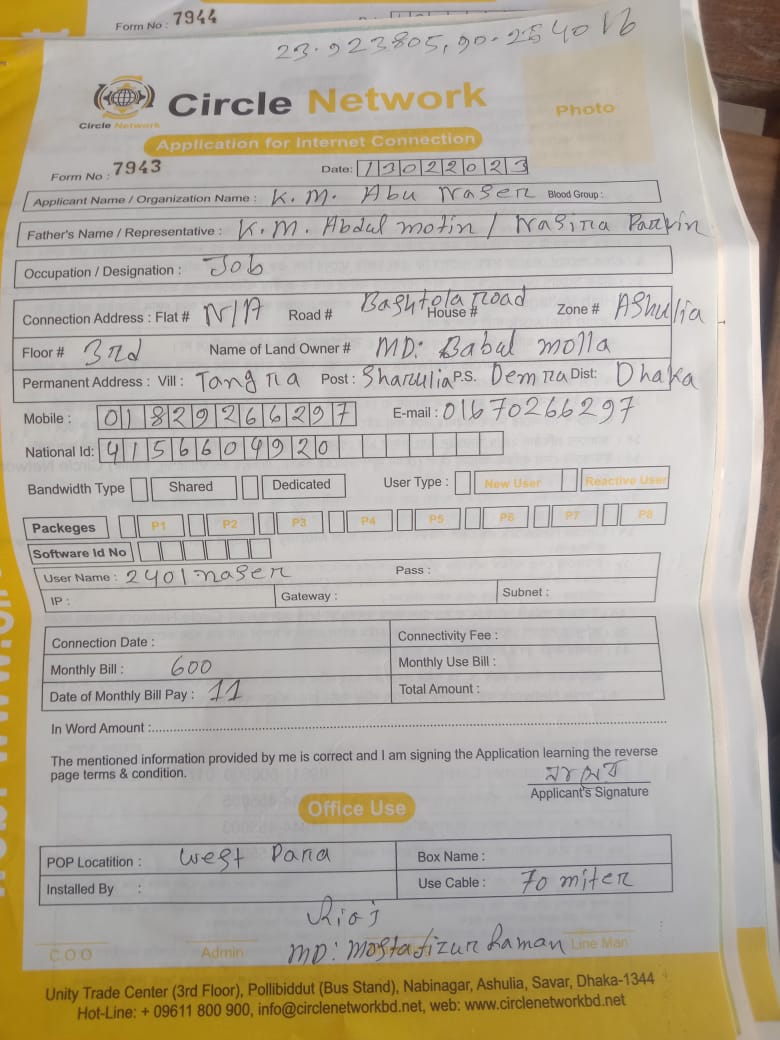 Form No : 7944
23.923805, 90.254016
Circle Network
Circle Network
Photo
Application for Internet Connection
Form No : 7943
Date: 13022023
Applicant Name / Organization Name : K. M. Abu Naser Blood Group :
Father's Name / Representative : K. M. Abdul motin / Nasina Parvin
Occupation / Designation : Job
Connection Address : Flat # N/A Road # Bashtola road House # Zone # Ashulia
Floor # 3rd Name of Land Owner # MD: Babul molla
Permanent Address : Vill : Tangra Post : Sharulia P.S. Demra Dist: Dhaka
Mobile : 01829266297 E-mail : 01670266297
National Id: 4156604920
Bandwidth Type Shared Dedicated User Type : New User Reactive User
Packeges P1 P2 P3 P4 P5 P6 P7 P8
Software Id No
User Name : 2401naser Pass :
IP : Gateway : Subnet :
Connection Date : Connectivity Fee :
Monthly Bill : 600 Monthly Use Bill :
Date of Monthly Bill Pay : 11 Total Amount :
In Word Amount :
The mentioned information provided by me is correct and I am signing the Application learning the reverse
page terms & condition.
Applicant's Signature
Office Use
POP Locatition : West Para Box Name :
Installed By : Use Cable : 70 miter
MD: Mostafizur Raman
C.O.O Admin Line Man
Unity Trade Center (3rd Floor), Pollibiddut (Bus Stand), Nabinagar, Ashulia, Savar, Dhaka-1344
Hot-Line: + 09611 800 900, info@circlenetworkbd.net, web: www.circlenetworkbd.net